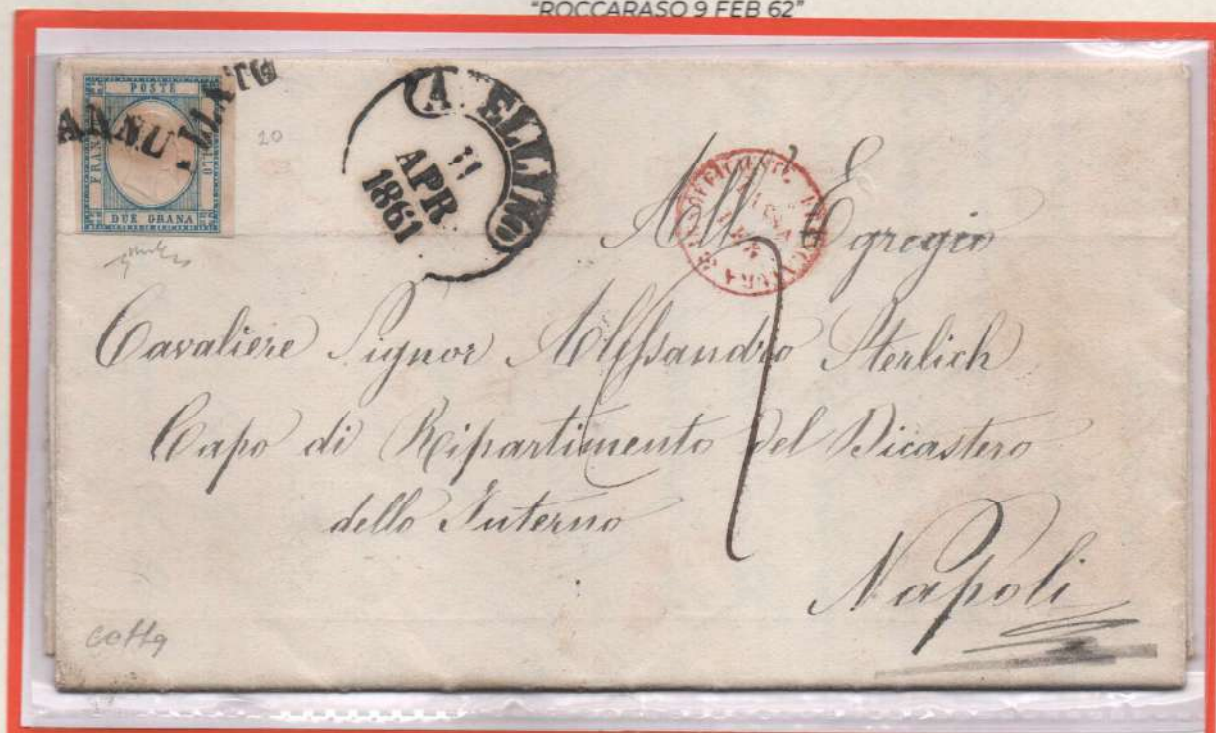 "ROCCARASO 9 FEB 62"
POSTE
FRAN
LLO
DUE GRANA
ANNU LLATO
20
A ELLINO
11
APR
1861
All' Egregio
Cavaliere Signor Alessandro Sterlich
Capo di Ripartimento del Dicastero
dello Interno
Napoli